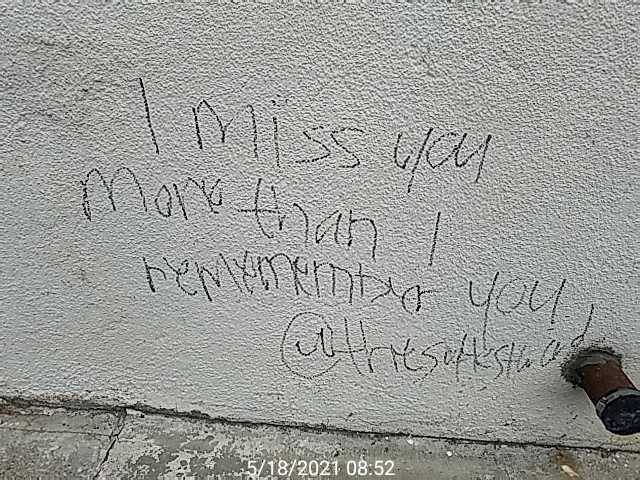 I miss you
more than I
rememember you
5/18/2021 08:52